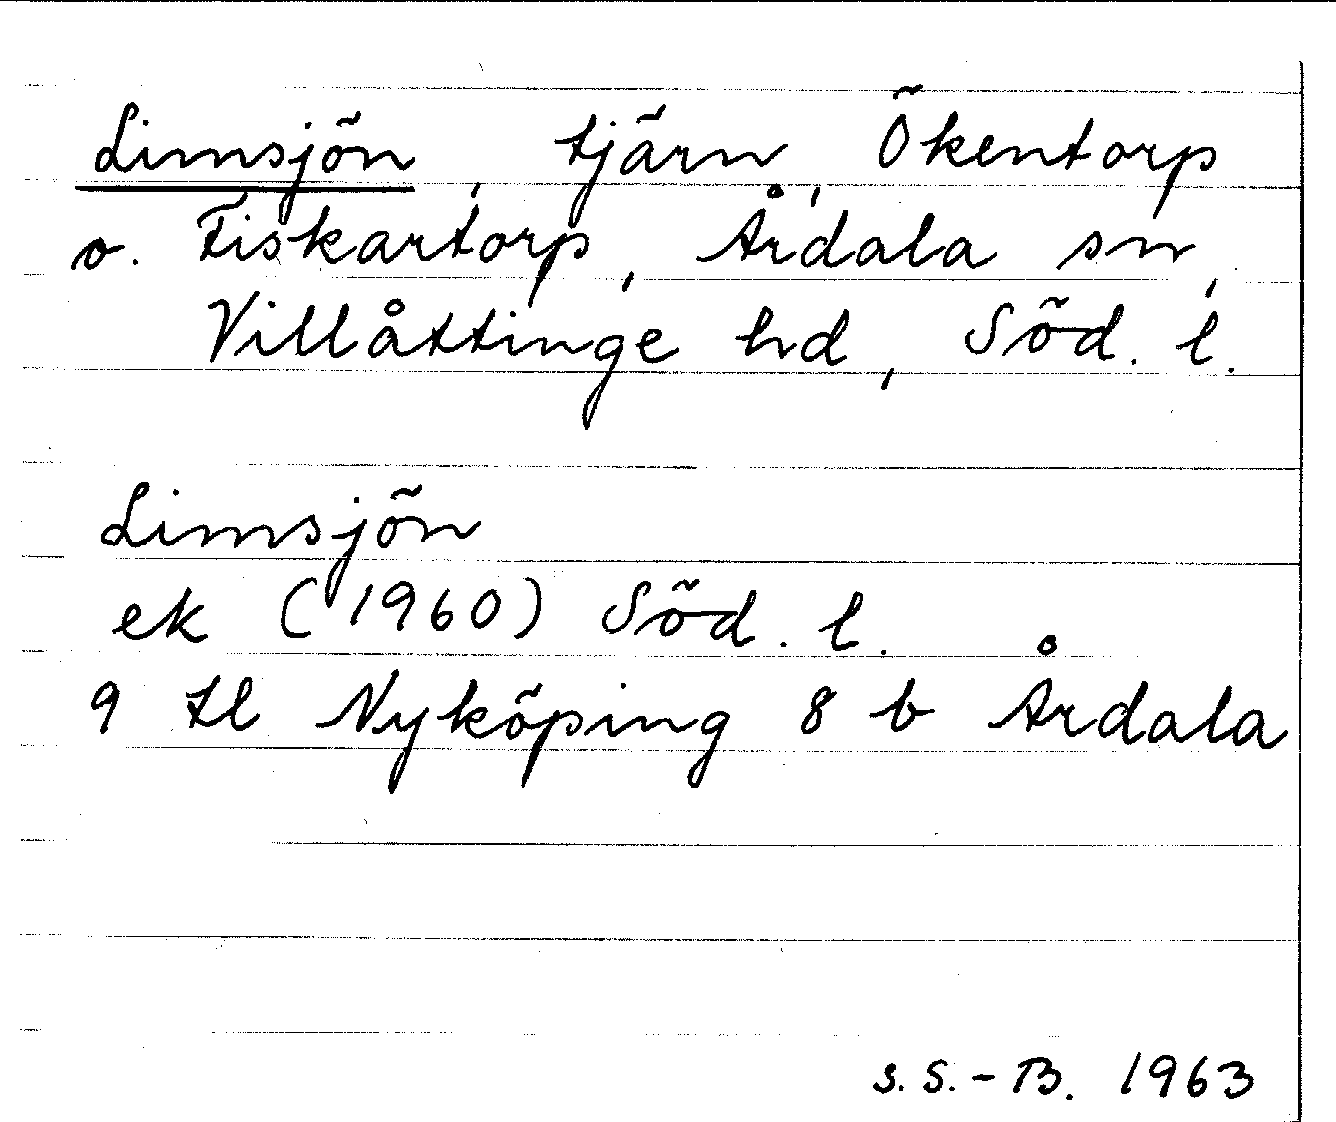 Limsjön, tjärn, Ökentorp
o. Fiskartorp, Årdala sn,
Villåttinge hd, Söd. l.
Limsjön
ek (1960) Söd. l.
9 tl Nyköping 8 b Årdala
S. S.-B. 1963